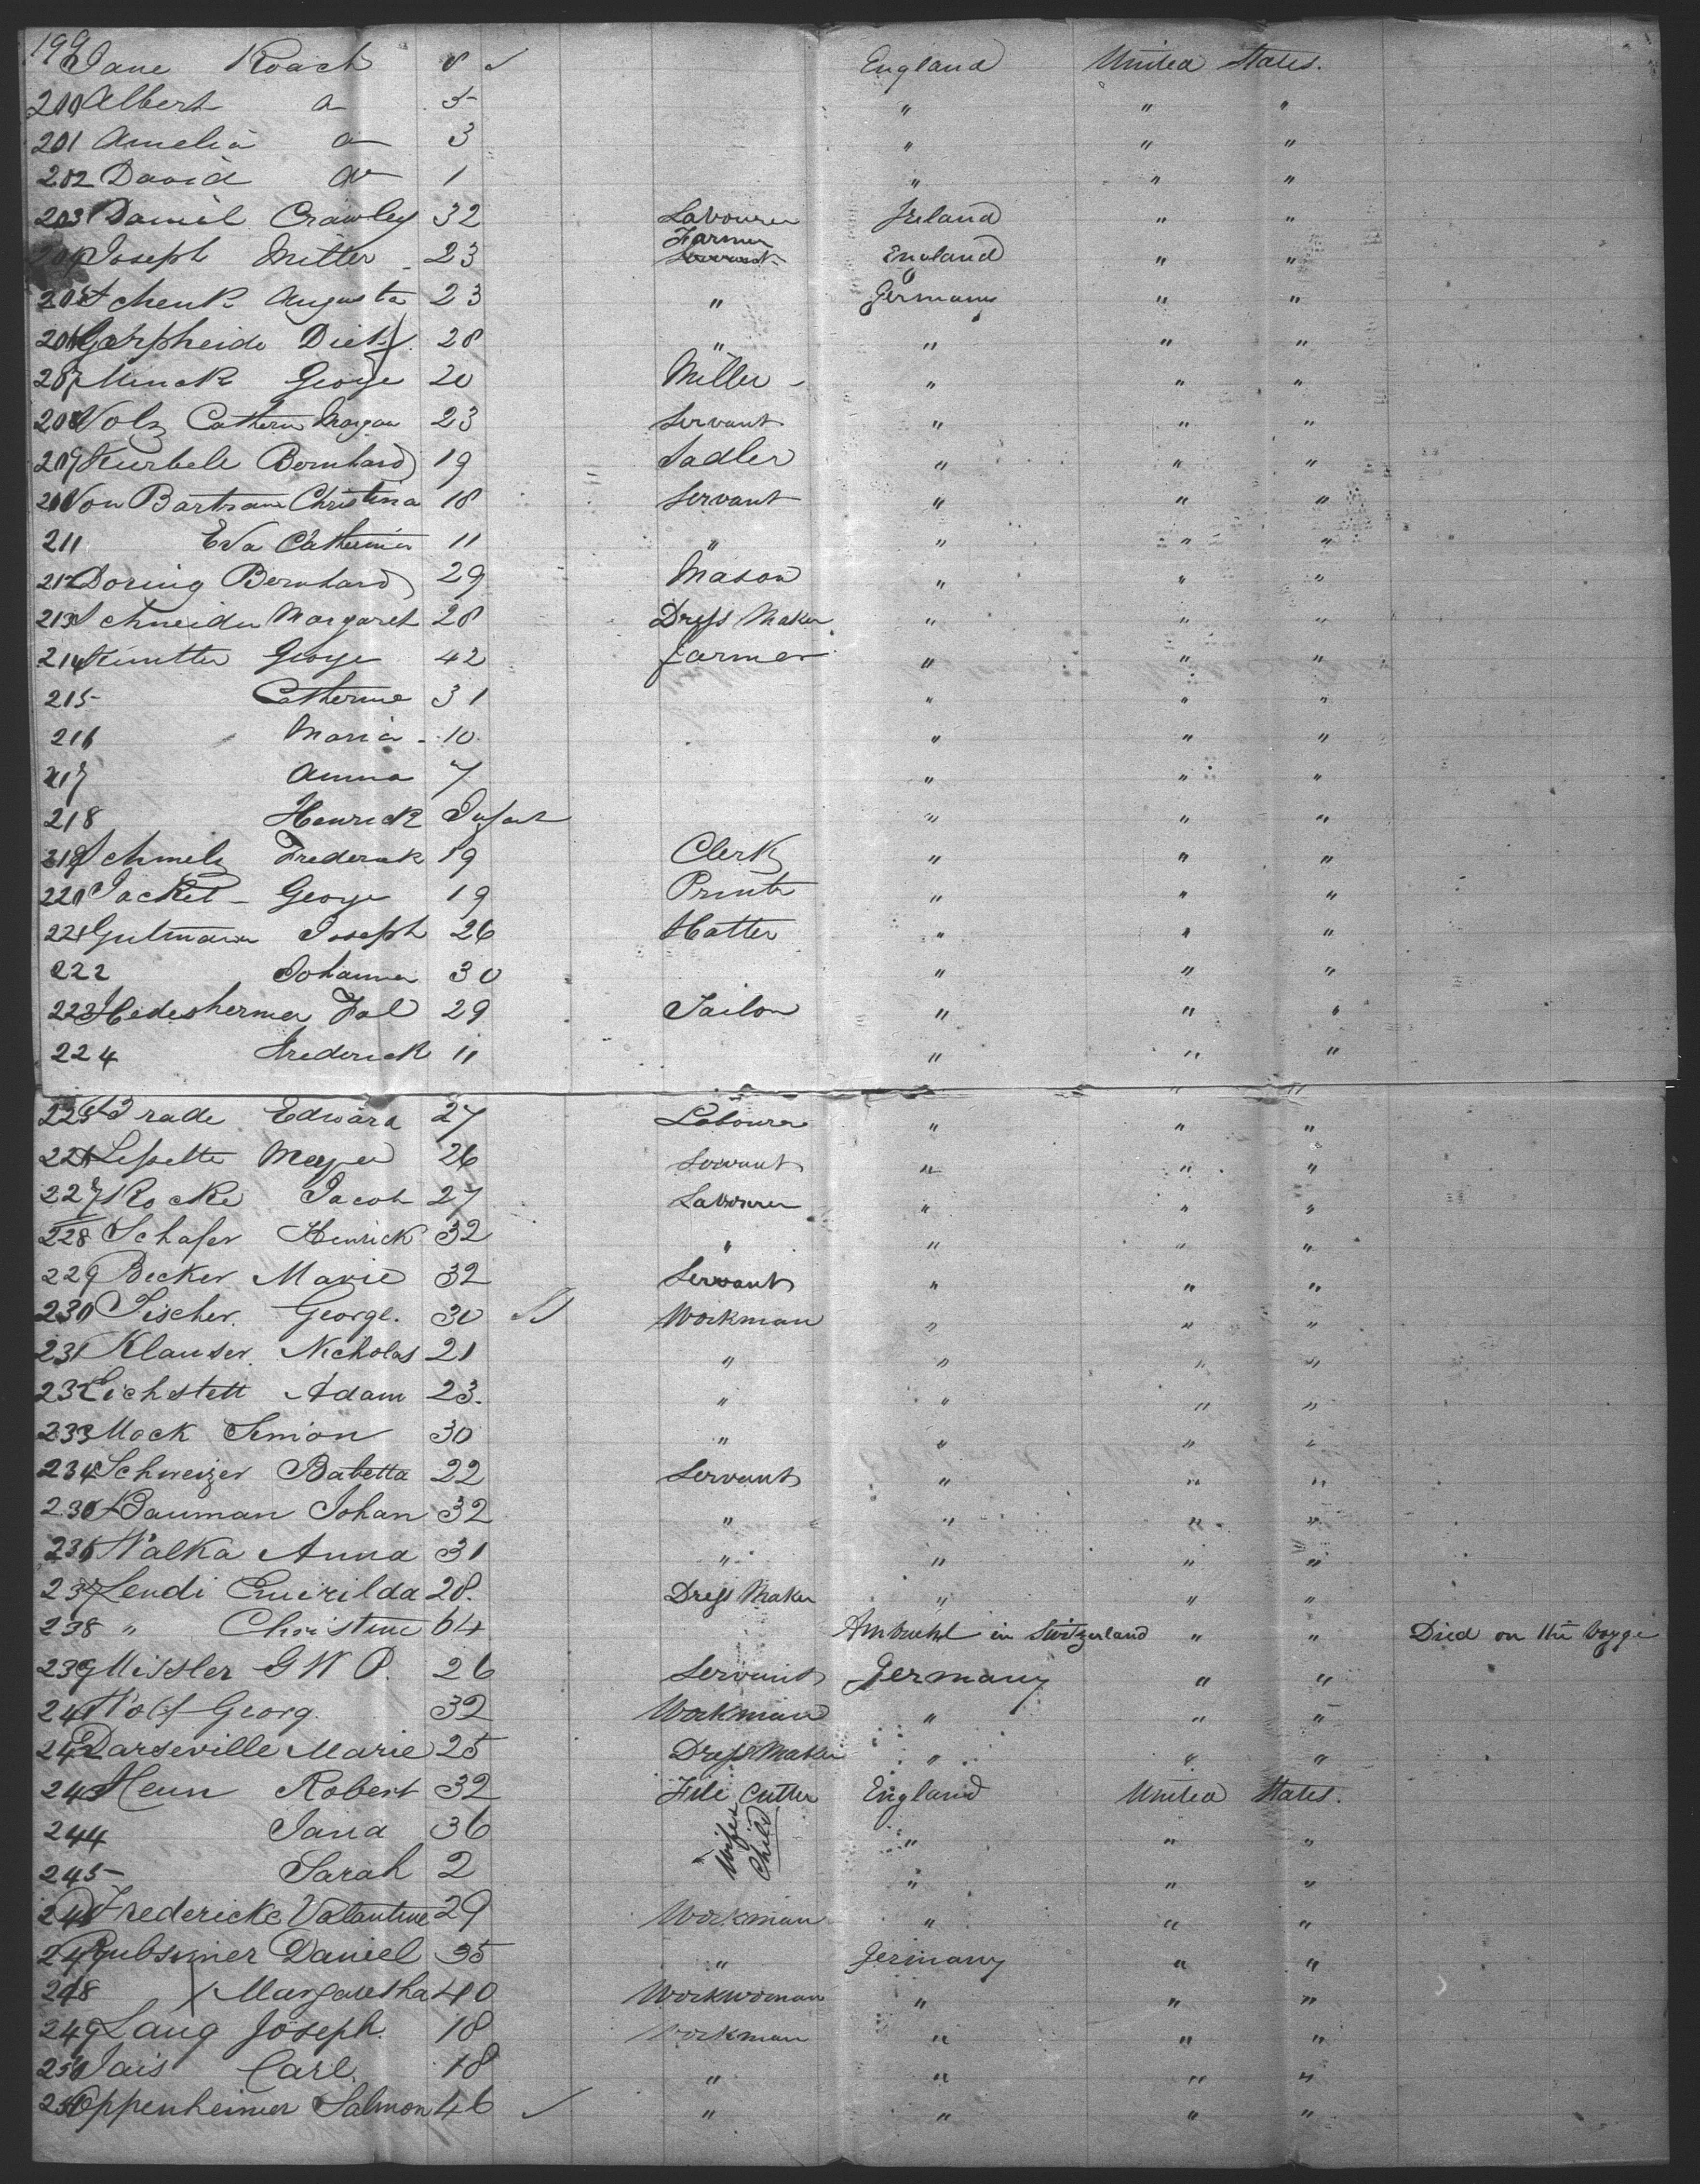 199 Jane Roach 8 England United States.
200 Albert 5 " " "
201 Amelia 3 " " "
202 David 1 " " "
203 Daniel Crawley 32 Labourer Ireland " "
204 Joseph 23 Farmer England " "
205 Schenk Augusta 23 " Germany " "
206 28 " " " "
207 Menck George 20 Miller " " "
208 Volz Cathern 23 Servant " " "
209 Bernhard 19 Sadler " " "
210 Von Bartram Christina 18 Servant " " "
211 Eva Catherina 11 " " " "
212 Doring Bernhard 29 Mason " " "
213 Schneider Margaret 28 Dress Maker " " "
214 George 42 Farmer " " "
215 Catherine 31 " " "
216 Maria 10 " " "
217 Anna 7 " " "
218 Henrick Infant " " "
219 Schmelz Frederick 19 Clerk " " "
220 Jackel George 19 Printer " " "
221 Gutmann Joseph 26 Hatter " " "
222 Johanna 30 " " "
223 29 Tailor " " "
224 Frederick 11 " " "
" "
225 Edward 27 Labourer " " "
226 Lissette Meyer 26 Servant " " "
227 Jacob 27 Labourer " " "
228 Schafer Henrick 32 " " " "
229 Becker Marie 32 Servant " " "
230 Fischer. George. 30 Workman " " "
231 Klauser. Nicholas 21 " " " "
232 Eichstett Adam 23. " " " "
233 Mock Simon 30 " " " "
234 Schweizer Babetta 22 Servant " " "
235 Bauman Johan 32 " " " "
236 Walka Anna 31 " " " "
237 Lendi 28. Dress Maker " " "
238 " Christine 64 in Switzerland " " Died on the Voyge
239 Missler G W P. 26 Servant Germany " "
241 Wolf Georg. 32 Workman " " "
242 Darseville Marie 25 Dress Maker " " "
243 Henn Robert 32 File Cutter England United States.
244 36 Wife " " "
245 Sarah 2 Child " " "
246 Fredericke Valantine 29 Workman " " "
247 Daniel 35 " Germany " "
248 Margaretha 40 Workwoman " " "
249 Lang Joseph. 18 Workman " " "
250 Jais Carl. 18 " " " "
251 Oppenheimer Salmon 46 " " " "